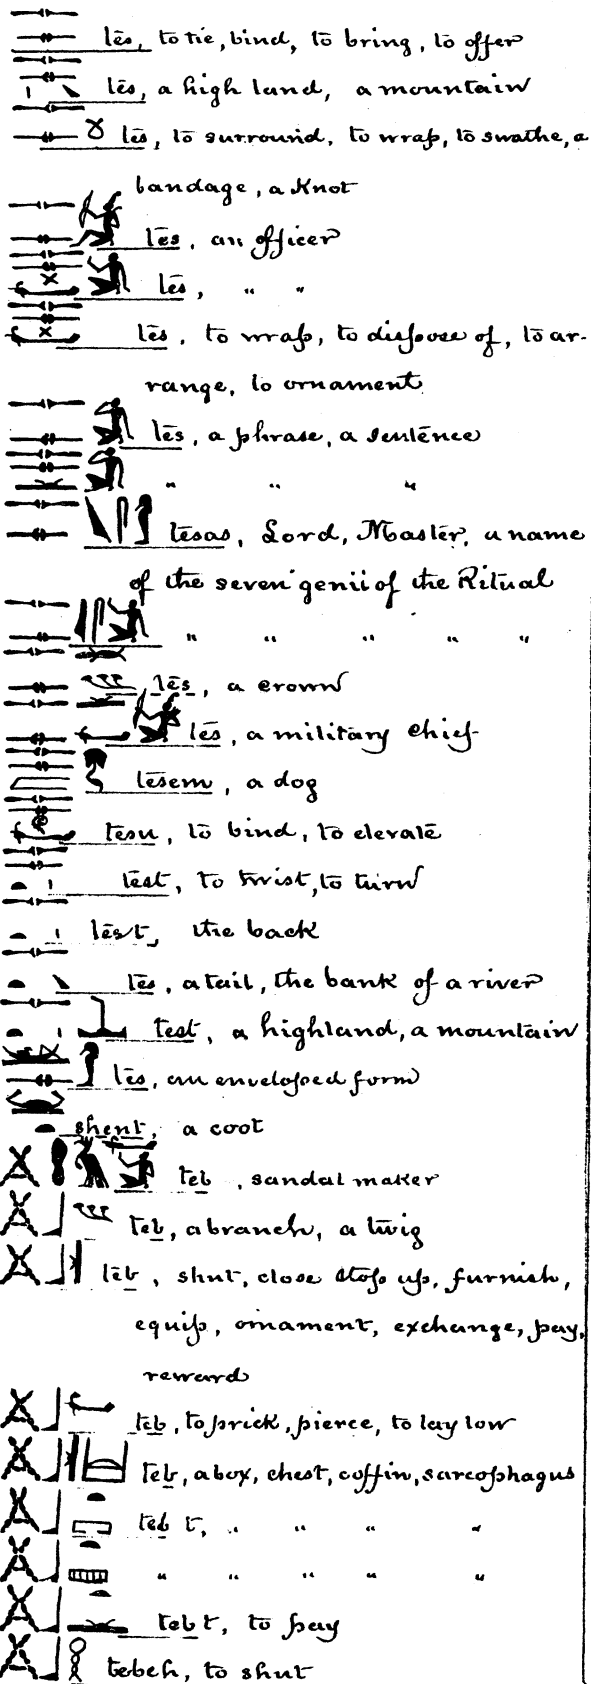 tēs, to tie, bind, to bring, to offer
tēs, a high land, a mountain
tēs, to surround, to wrap, to swathe, a
bandage, a Knot
tēs, an officer
tēs, " "
tēs, to wrap, to dispose of, to ar-
range, to ornament
tēs, a phrase, a sentence
" " "
tesas, Lord, Master, a name
of the seven genii of the Ritual
" " " " "
tēs, a crown
tēs, a military chief
tēsem, a dog
tesu, to bind, to elevate
test, to twist, to turn
tēst, the back
tēs, a tail, the bank of a river
test, a highland, a mountain
tēs, an enveloped form
shent, a coot
teb, sandal maker
teb, a branch, a twig
teb, shut, close stop up, furnish,
equip, ornament, exchange, pay,
reward
teb, to prick, pierce, to lay low
teb, a box, chest, coffin, sarcophagus
teb t, " " " "
" " " " "
teb t, to pay
tebeh, to shut